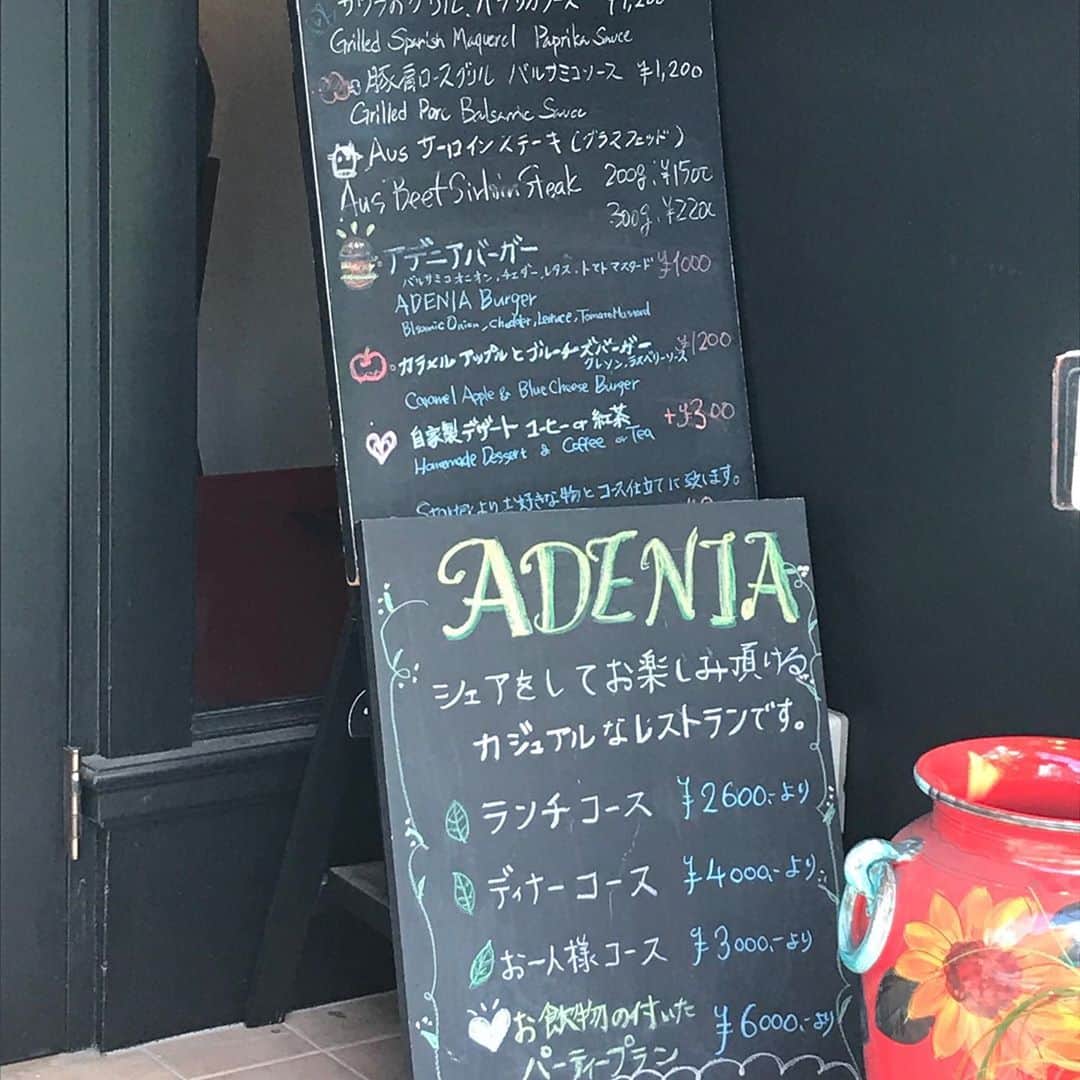 サワラのグリル、パプリカソース ¥1,200
Grilled Spanish Maquerel Paprika Sauce
豚肩ロースグリル バルサミコソース ¥1,200
Grilled Porc Balsamic Sauce
Aus サーロインステーキ(グラスフェッド)
Aus Beef Sirloin Steak 200g:¥1500
300g:¥2200
アデニアバーガー
バルサミコオニオン、チェダー、レタス、トマトマスタード ¥1000
ADENIA Burger
Blsamic Onion, Chedder, Lettuce, Tomato Mustard
カラメルアップルとブルーチーズバーガー ¥1200
クレソン、ラズベリーソース
Caramel Apple & Blue Cheese Burger
自家製デザート コーヒー or 紅茶 +¥300
Homemade Dessert & Coffee or Tea
Starterよりお好きな物とコース仕立てに致します。
ADENIA
シェアをしてお楽しみ頂ける
カジュアルなレストランです。
ランチコース ¥2600.-より
ディナーコース ¥4000.-より
お一人様コース ¥3000.-より
お飲物の付いた
パーティープラン ¥6000.-より